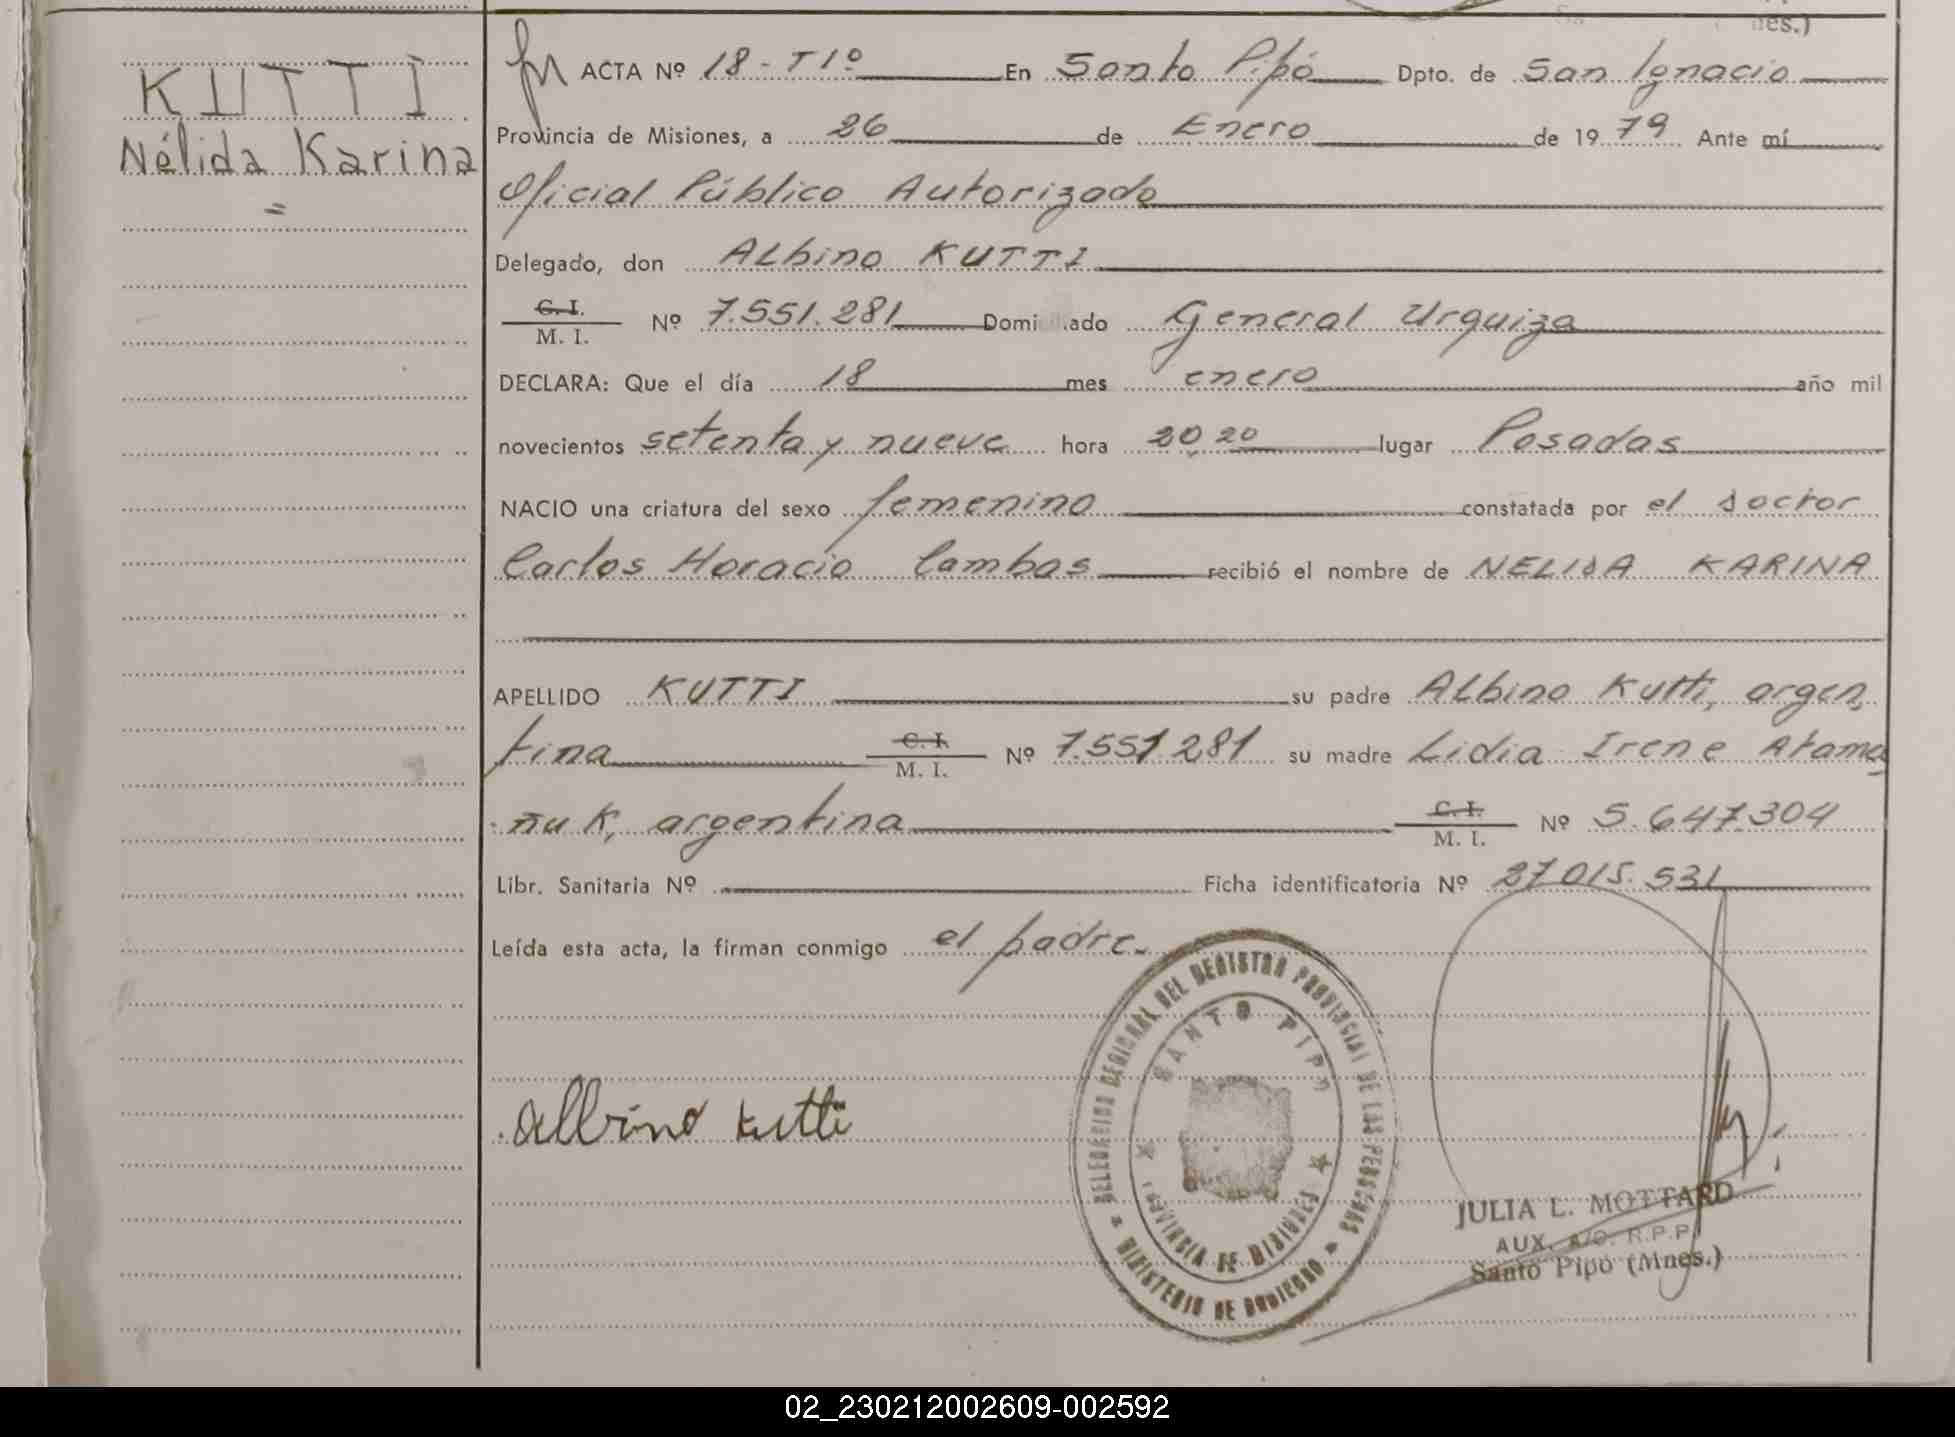 nes.)
KUTTI
Nélida Karina
ACTA Nº 18 - T1º En Santo Pipó Dpto. de San Ignacio
Provincia de Misiones, a 26 de Enero de 1979 Ante mí
Oficial Público Autorizado
Delegado, don Albino KUTTI
C. I.
M. I. Nº 7.551.281 Domiciliado General Urquiza
DECLARA: Que el día 18 mes enero año mil
novecientos setenta y nueve hora 20,20 lugar Posadas
NACIO una criatura del sexo femenino constatada por el doctor
Carlos Horacio Cambas recibió el nombre de NELIDA KARINA
APELLIDO KUTTI su padre Albino Kutti, argen
tina C. I. M. I. Nº 7.551.281 su madre Lidia Irene Atama
ñuk, argentina C. I. M. I. Nº 5.647.304
Libr. Sanitaria Nº Ficha identificatoria Nº 27.015.531
Leída esta acta, la firman conmigo el padre.
Albino Kutti
DELEGACION REGIONAL DEL REGISTRO PROVINCIAL DE LAS PERSONAS
SANTO PIPO
PROVINCIA DE MISIONES
MINISTERIO DE GOBIERNO
JULIA L. MOTTARD
AUX. A/C. R.P.P.
Santo Pipó (Mnes.)
02_230212002609-002592